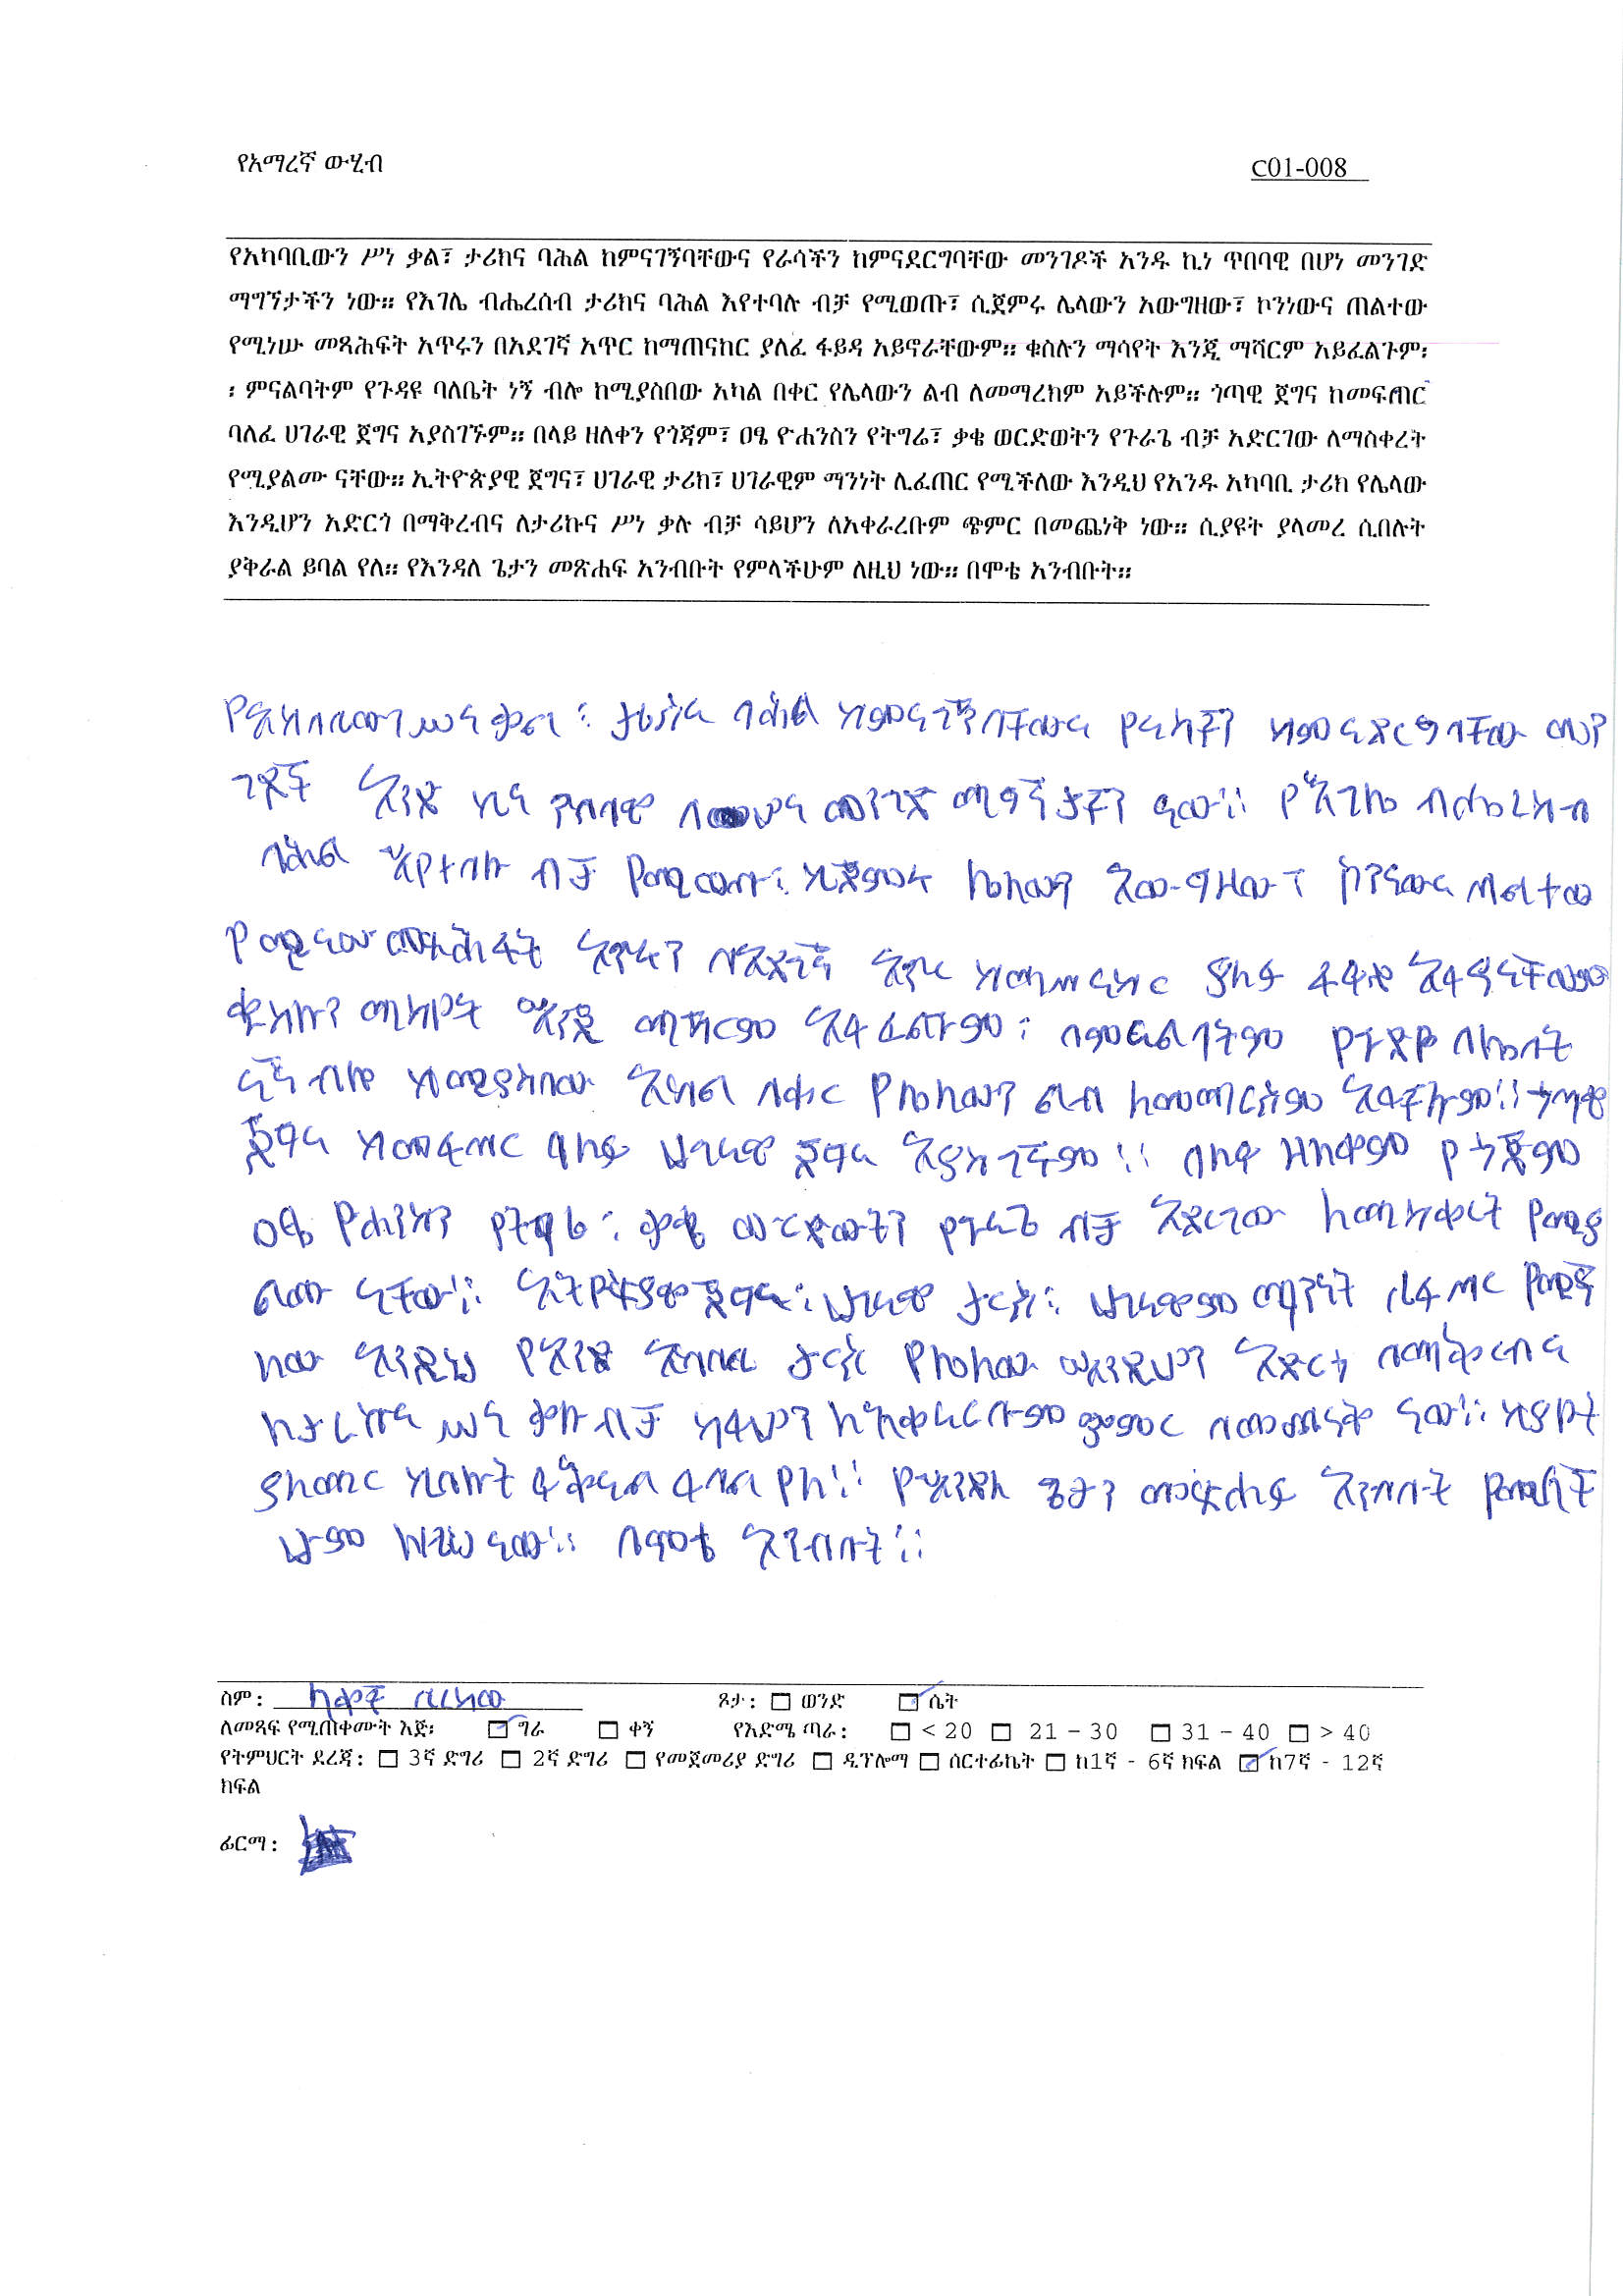 የአማረኛ ውሂብ
C01-008
የአካባቢውን ሥነ ቃል፣ ታሪክና ባሕል ከምናገኝባቸውና የራሳችን ከምናደርግባቸው መንገዶች አንዱ ኪነ ጥበባዊ በሆነ መንገድ
ማግኘታችን ነው። የእገሌ ብሔረሰብ ታሪክና ባሕል እየተባሉ ብቻ የሚወጡ፣ ሲጀምሩ ሌላውን አውግዘው፣ ኮንነውና ጠልተው
የሚነሡ መጻሕፍት አጥሩን በአደገኛ አጥር ከማጠናከር ያለፈ ፋይዳ አይኖራቸውም። ቁስሉን ማሳየት እንጂ ማሻርም አይፈልጉም፡
፡ ምናልባትም የጉዳዩ ባለቤት ነኝ ብሎ ከሚያስበው አካል በቀር የሌላውን ልብ ለመማረክም አይችሉም። ጎጣዊ ጀግና ከመፍጠር
ባለፈ ሀገራዊ ጀግና አያስገኙም። በላይ ዘለቀን የጎጃም፣ ዐፄ ዮሐንስን የትግሬ፣ ቃቄ ወርድወትን የጉራጌ ብቻ አድርገው ለማስቀረት
የሚያልሙ ናቸው። ኢትዮጵያዊ ጀግና፣ ሀገራዊ ታሪክ፣ ሀገራዊም ማንነት ሊፈጠር የሚችለው እንዲህ የአንዱ አካባቢ ታሪክ የሌላው
እንዲሆን አድርጎ በማቅረብና ለታሪኩና ሥነ ቃሉ ብቻ ሳይሆን ለአቀራረቡም ጭምር በመጨነቅ ነው። ሲያዩት ያላመረ ሲበሉት
ያቅራል ይባል የለ። የእንዳለ ጌታን መጽሐፍ አንብቡት የምላችሁም ለዚህ ነው። በሞቴ አንብቡት።
ሥነ ቃል፡ ታሪክና ባሕል ከምናገኝባቸውና ከምናደርግባቸው መን
ገዶች አንድ ኪነ መንገድ ማግኛታችን ነው። የእገሌ ብሔረስብ
ባሕል እየተባሉ ብቻ የሚወጡ፡ ሲጀምሩ ሌላውን አውግዘው፣ ኮንነውና ጠልተው
የሚነሡ መጻሕፍት አጥሩን በአደገኛ አጥር ከማጠናከር ያለፈ
ቁስሉን ማሳየት እንጂ ማሻርም አይፈልጉም፡ በምናልባትም የጉዳዩ ባለቤት
ነኝ ብሎ ከሚያስበው አካል በቀር የሌላውን ልብ ለመማርክም አይችሉም። ጎጣዊ
ጀግና ከመፍጠር ባለፈ ሀገራዊ ጀግና አያስገኙም። በላይ ዘለቀም የጎጃም
ዐፄ ዮሐንስን የትግሬ፡ ቃቄ ወርድወትን የጉራጌ ብቻ አድርገው ለማስቀረት የሚያ
ልሙ ናቸው። ጀግና፡ ሀገራዊ ታሪክ፡ ሀገራዊም ማንነት ሊፈጠር የሚች
ለው እንዲህ የአንድ አካባቢ ታሪክ የሌላው አድርጎ በማቅረብና
ለታሪኩና ሥነ ቃሉ ብቻ ሳይሆን ለአቀራረቡም ጭምር በመጨነቅ ነው። ሲያዩት
ያለመር ሲበሉት ያቅራል ይባል የለ። የእንዳለ ጌታን መጽሐፍ አንብቡት የምላች
ሁም ለዚህ ነው። በሞቴ አንብቡት።
ስም:
ጾታ: ወንድ ሴት
ለመጻፍ የሚጠቀሙት እጅ: ግራ ቀኝ የእድሜ ጣራ: < 20 21 – 30 31 – 40 > 40
የትምህርት ደረጃ: 3ኛ ድግሪ 2ኛ ድግሪ የመጀመሪያ ድግሪ ዲፕሎማ ሰርተፊኬት ከ1ኛ - 6ኛ ክፍል ከ7ኛ - 12ኛ
ክፍል
ፊርማ: